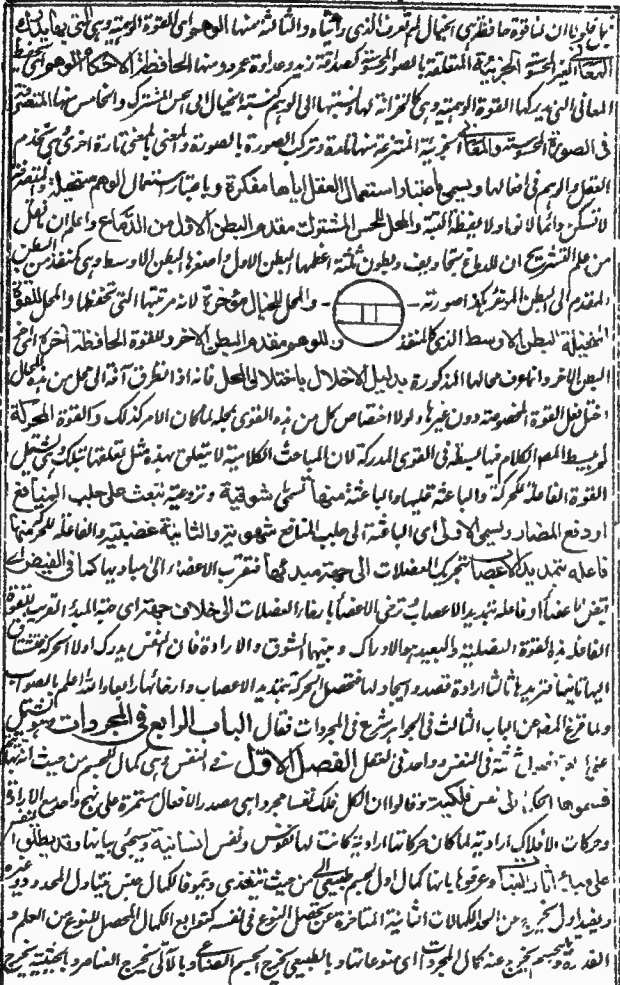 قوة حافظة هى الخيال والثالثة منها الوهم اى القوة الوهمية وهى التى بها يدرك
الغير المحسوسة الجزئية المتعلقة بالصور المحسوسة كصداقة زيد وعداوة عمرو ومنها الحافظة لاحكام الوهم وهى تحفظ
المعانى التى يدركها القوة الوهمية وهى كالخزانة لها ونسبتها الى الوهم كنسبة الخيال الى الحس المشترك والخامس منها المتصرفة
فى الصورة المحسوسة والمعانى الجزئية المنتزعة منها تارة وتركب الصورة بالصورة والمعنى بالمعنى تارة اخرى وهى تخدم
العقل والوهم فى افعالها ويسمى باعتبار استعمال العقل اياها مفكرة وباعتبار استعمال الوهم متخيلة والمتصرفة
لا تسكن دائما لا نوما ولا يقظة البتة والمحل للحس المشترك مقدم البطن الاول من الدماغ واعلم ان
من علم التشريح ان للدماغ تجاويف وبطون ثلثة اعظمها البطن الاول واصغرها البطن الاوسط وهى كمنفذ من البطن
المقدم الى البطن الموخر وهكذا صورته والمحل للخيال مؤخرة لانه مرتبتها التى تحفظها والمحل للقوة
المتخيلة البطن الاوسط الذى كالمنفذ وللوهم مقدم البطن الاخر وللقوة الحافظة آخره اى
البطن الاخر وانما عرف محالها المذكورة بدليل الاختلال باختلال المحل فانه اذا تطرق آفة الى محل من هذه المحال
اختل فعل القوة المخصوصة دون غيرها ولولا اختصاص كل من هذه القوى بمحله لما كان الامر كذلك والقوة المحركة
لم يبسط المصـ الكلام فيها كبسطه فى القوى المدركة لان المباحث الكلامية لا يتعلق بهذه مثل تعلقها بتلك وهى تشتمل
القوة الفاعلة للحركة والباعثة عليها والباعثة منها تسمى شوقية ونزوعية تنبعث على جلب المنافع
او دفع المضار ويسمى الاولى اى الباعثة الى جلب المنافع شهوية والثانية غضبية والفاعلة للحركة منها
فاعلة بتمديد الاعصاب بتحريك العضلات الى جهة مبدئها فتقرب الاعضاء الى مباديها كما فى القبض اى
او فاعلة بتمديد الاعصاب ترخى الاعصاب بارخاء العضلات الى خلاف جهة اى جهة المبدأ القريب للقوة
الفاعلة هذه القوة العضلية والبعيد هو الادراك وبينهما الشوق والارادة فان النفس يدرك اولا الحركة فتشتاق
اليها ثانيا فتريدها ثالثا ارادة قصد وايجاد لها فتحصل الحركة بتمديد الاعصاب وارخائها رابعا والله اعلم بالصواب
ولما فرغ المصـ عن الباب الثالث فى الجواهر شرع فى المجردات فقال الباب الرابع فى المجردات يشتمل
على فصول ثلثة فى النفس وواحد فى العقل الفصل الاول فى النفس وهى كمال للجسم من حيث انه
قسموها الحكماء الى نفس فلكية وقالوا ان لكل فلك نفسا مجردا هى مصدر الافعال مستمرة على نهج واحد من الارادة
وحركات الافلاك ارادية لما كان حركاتها ارادية كانت لها نفوس ونفس انسانية وسيجئ بيانها وقد يطلق النفس
على مبادى آثار وعرفوها بانها كمال اول لجسم طبيعى آلى من حيث التغذى ونموه فالكمال جنس يتناول المحدود وغيره
وبقيد اول يخرج عن الحد الكمالات الثانية المتاخرة عن تحصل النوع فى نفسه كتوابع الكمال المحصل للنوع من العلم و
القدرة وبالجسم يخرج عنه كمال المجردات اى منوعاتها وبالطبيعى يخرج الجسم الصناعى وبالآلى يخرج العناصر وبالحيثية يخرج